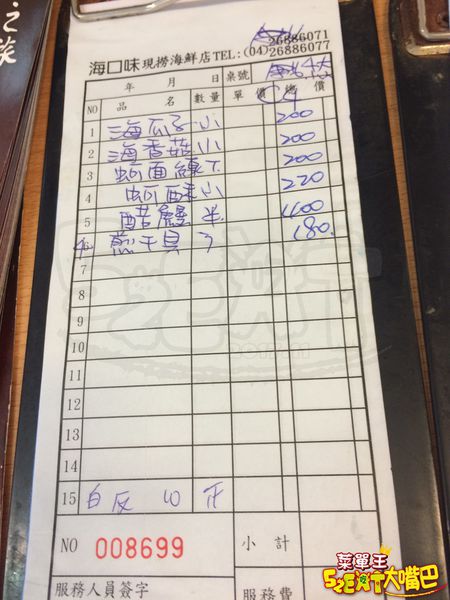 海口味現撈海鮮店TEL:(04)26886071
26886077
年 月 日 桌號
NO 品 名 數量 單 價 總 價
1 海瓜子 小 200
2 海香菇 小 200
3 蚵面線 下 200
4 蚵酥 小 220
5 醋 400
煎干貝 3 180.
7
8
9
10
11
12
13
14
15 白反 10 正
NO 008699 小 計
服務人員簽字 服務費
菜單王
SzEXT大嘴巴